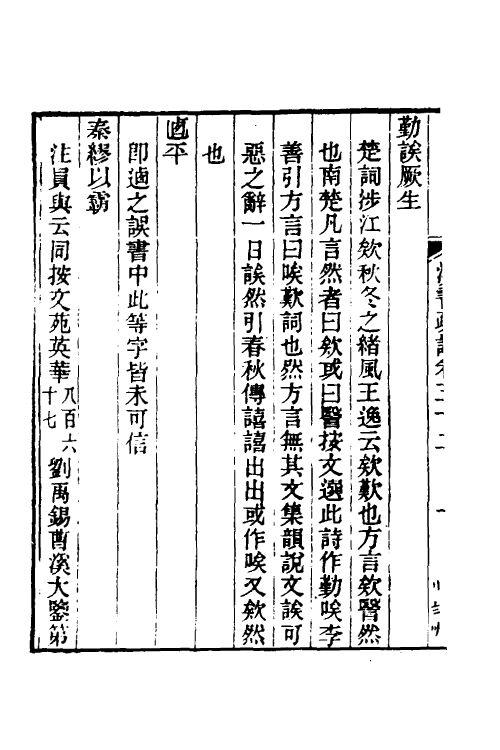 勤誒厥生
楚詞涉江欸秋冬之緒風王逸云欸歎也方言欸毉然
也南楚凡言然者曰欸或曰毉按文選此詩作勤唉李
善引方言曰唉歎詞也然方言無其文集韻說文誒可
惡之辭一曰誒然引春秋傳譆譆出出或作唉又欸然
也
卥平
卽逌之誤書中此等字皆未可信
秦繆以霸
注員與云同按文苑英華八百六十七劉禹錫曹溪大鑒第